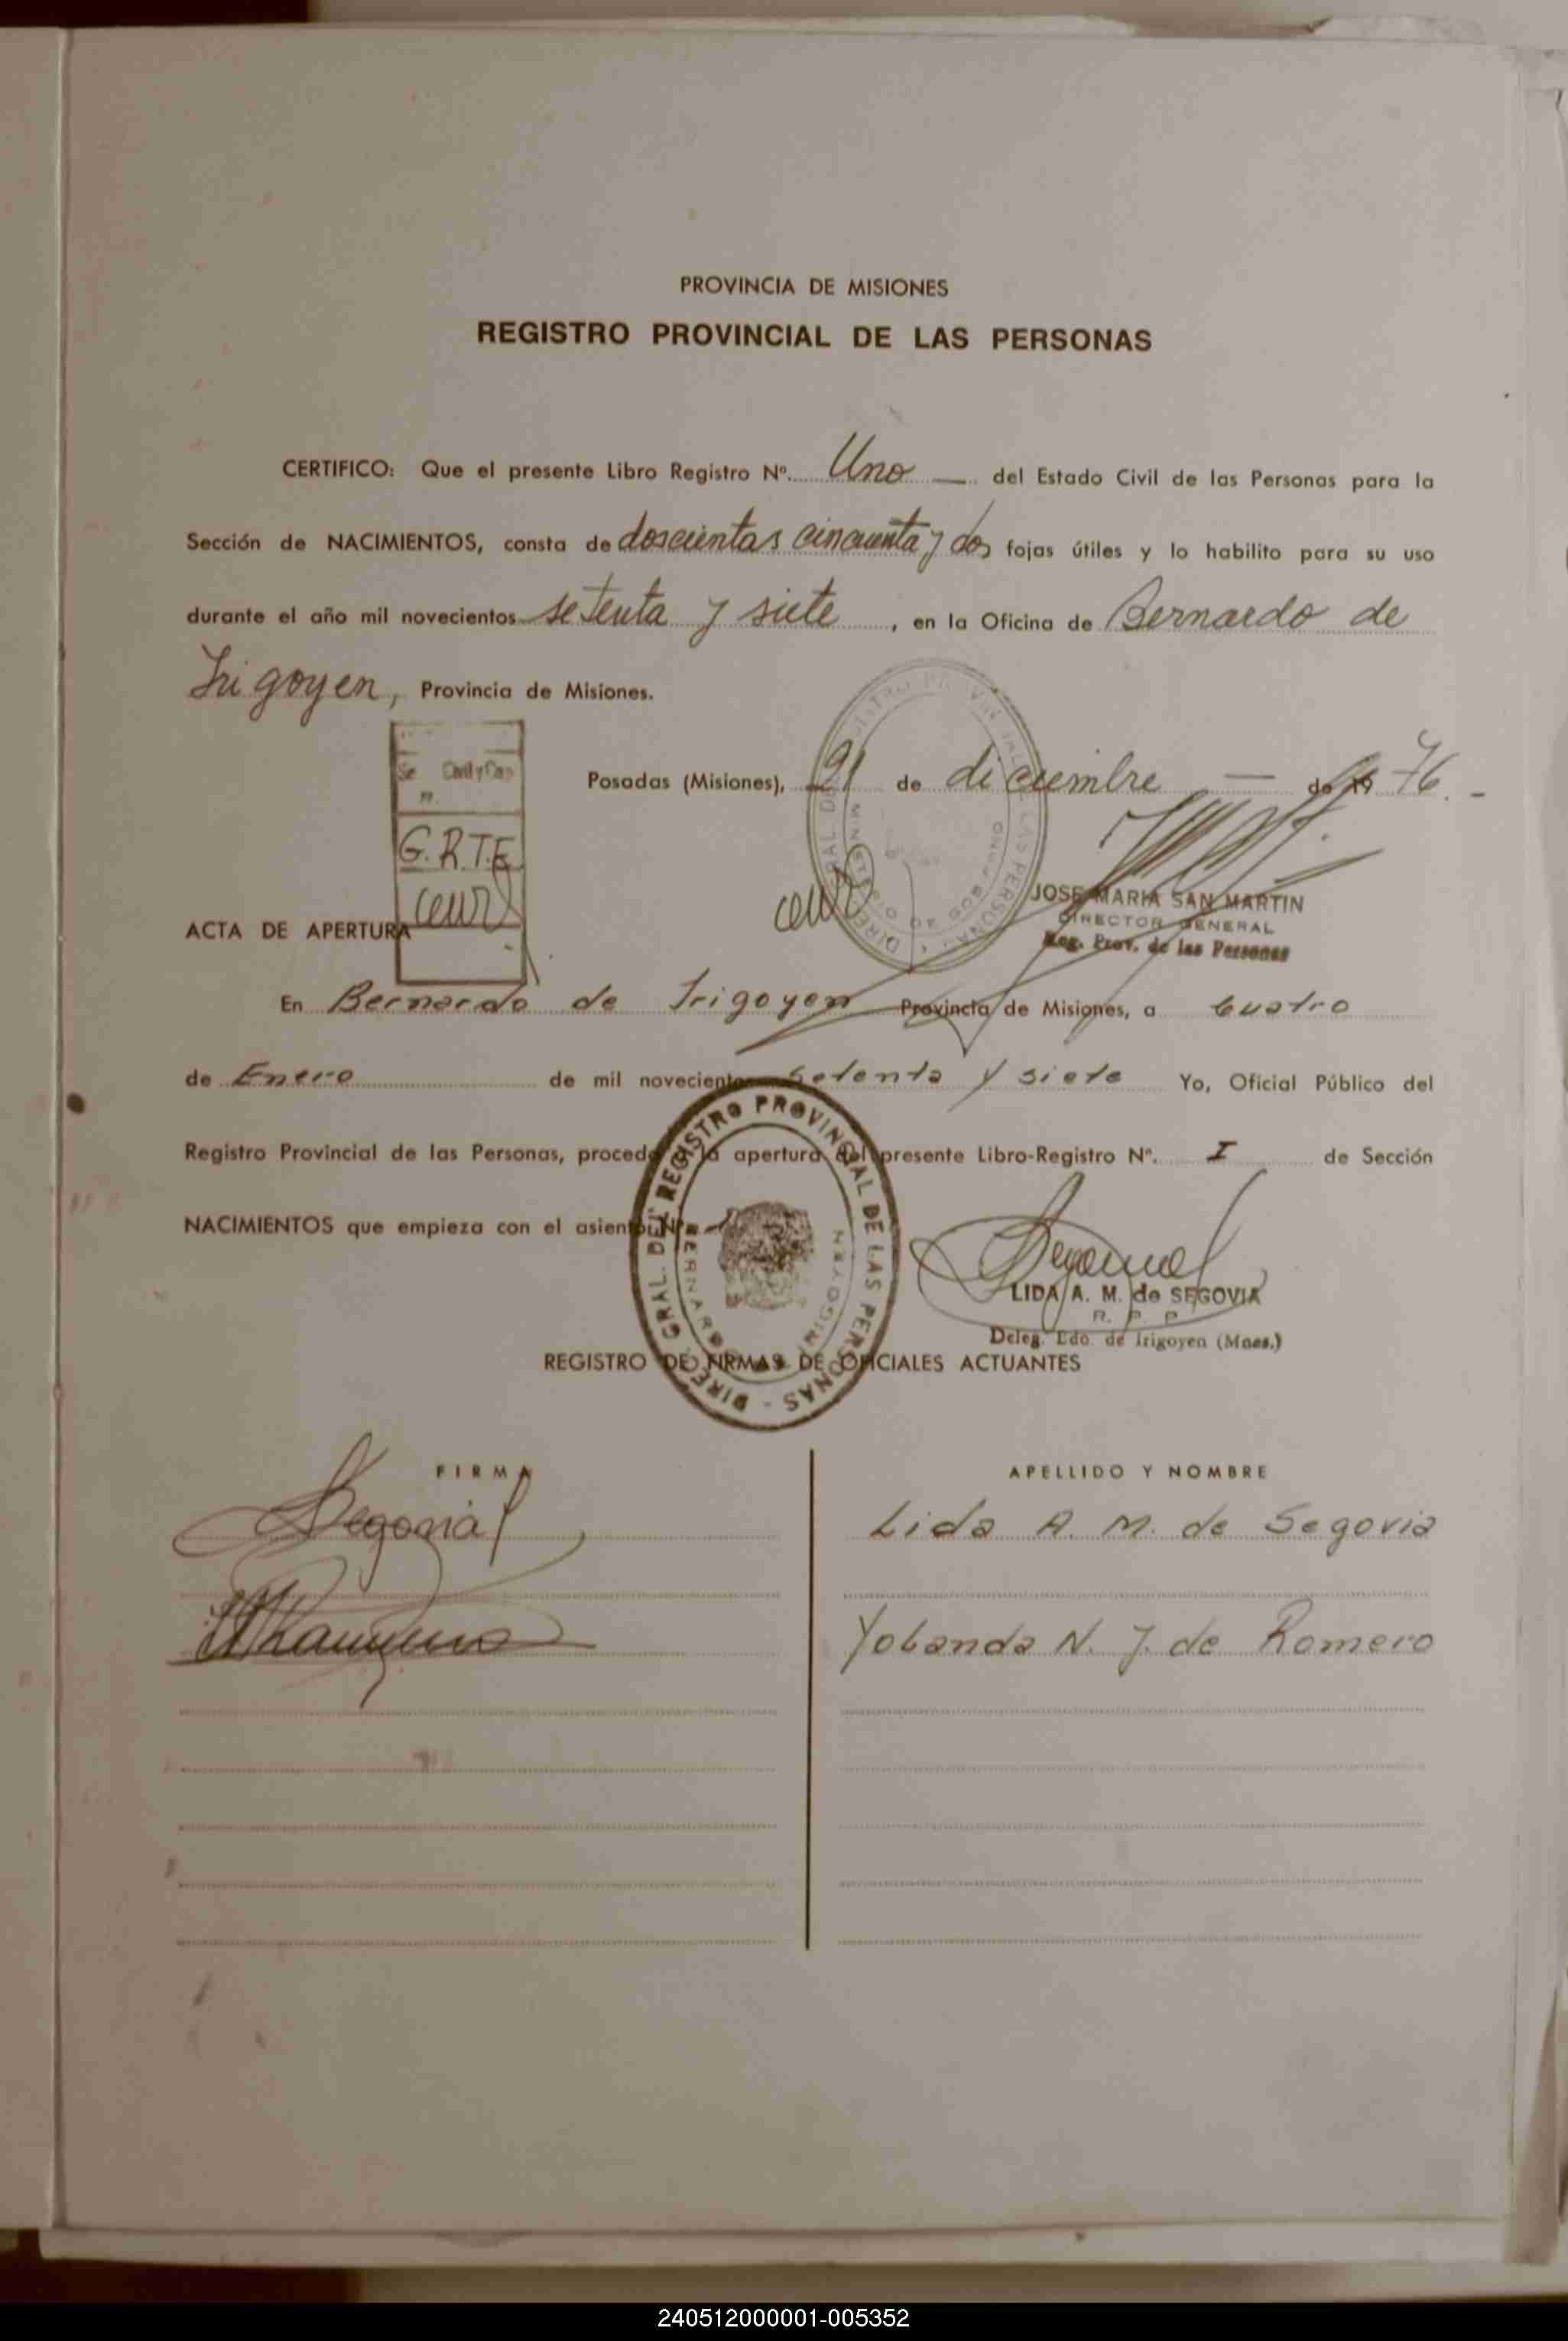 PROVINCIA DE MISIONES
REGISTRO PROVINCIAL DE LAS PERSONAS
CERTIFICO: Que el presente Libro Registro Nº. Uno — del Estado Civil de las Personas para la
Sección de NACIMIENTOS, consta de doscientas cincuenta y dos fojas útiles y lo habilito para su uso
durante el año mil novecientos setenta y siete, en la Oficina de Bernardo de
Irigoyen, Provincia de Misiones.
Posadas (Misiones), de diciembre — de 19 76.-
G.R.T.E
JOSE MARIA SAN MARTIN
DIRECTOR GENERAL
Reg. Prov. de las Personas
ACTA DE APERTURA
En Bernardo de Irigoyen Provincia de Misiones, a Cuatro
de Enero de mil novecientos Setenta y siete Yo, Oficial Público del
Registro Provincial de las Personas, procedo a la apertura del presente Libro-Registro Nº. I de Sección
NACIMIENTOS que empieza con el asiento Nº
DIREC. GRAL. DEL REGISTRO PROVINCIAL DE LAS PERSONAS -
BERNARDO DE IRIGOYEN
LIDA A. M. de SEGOVIA
R. P. P
Deleg. Bdo. de Irigoyen (Mnes.)
REGISTRO DE FIRMAS DE OFICIALES ACTUANTES
FIRMA APELLIDO Y NOMBRE
Segovia Lida A. M. de Segovia
Yolanda N. J. de Romero
240512000001-005352